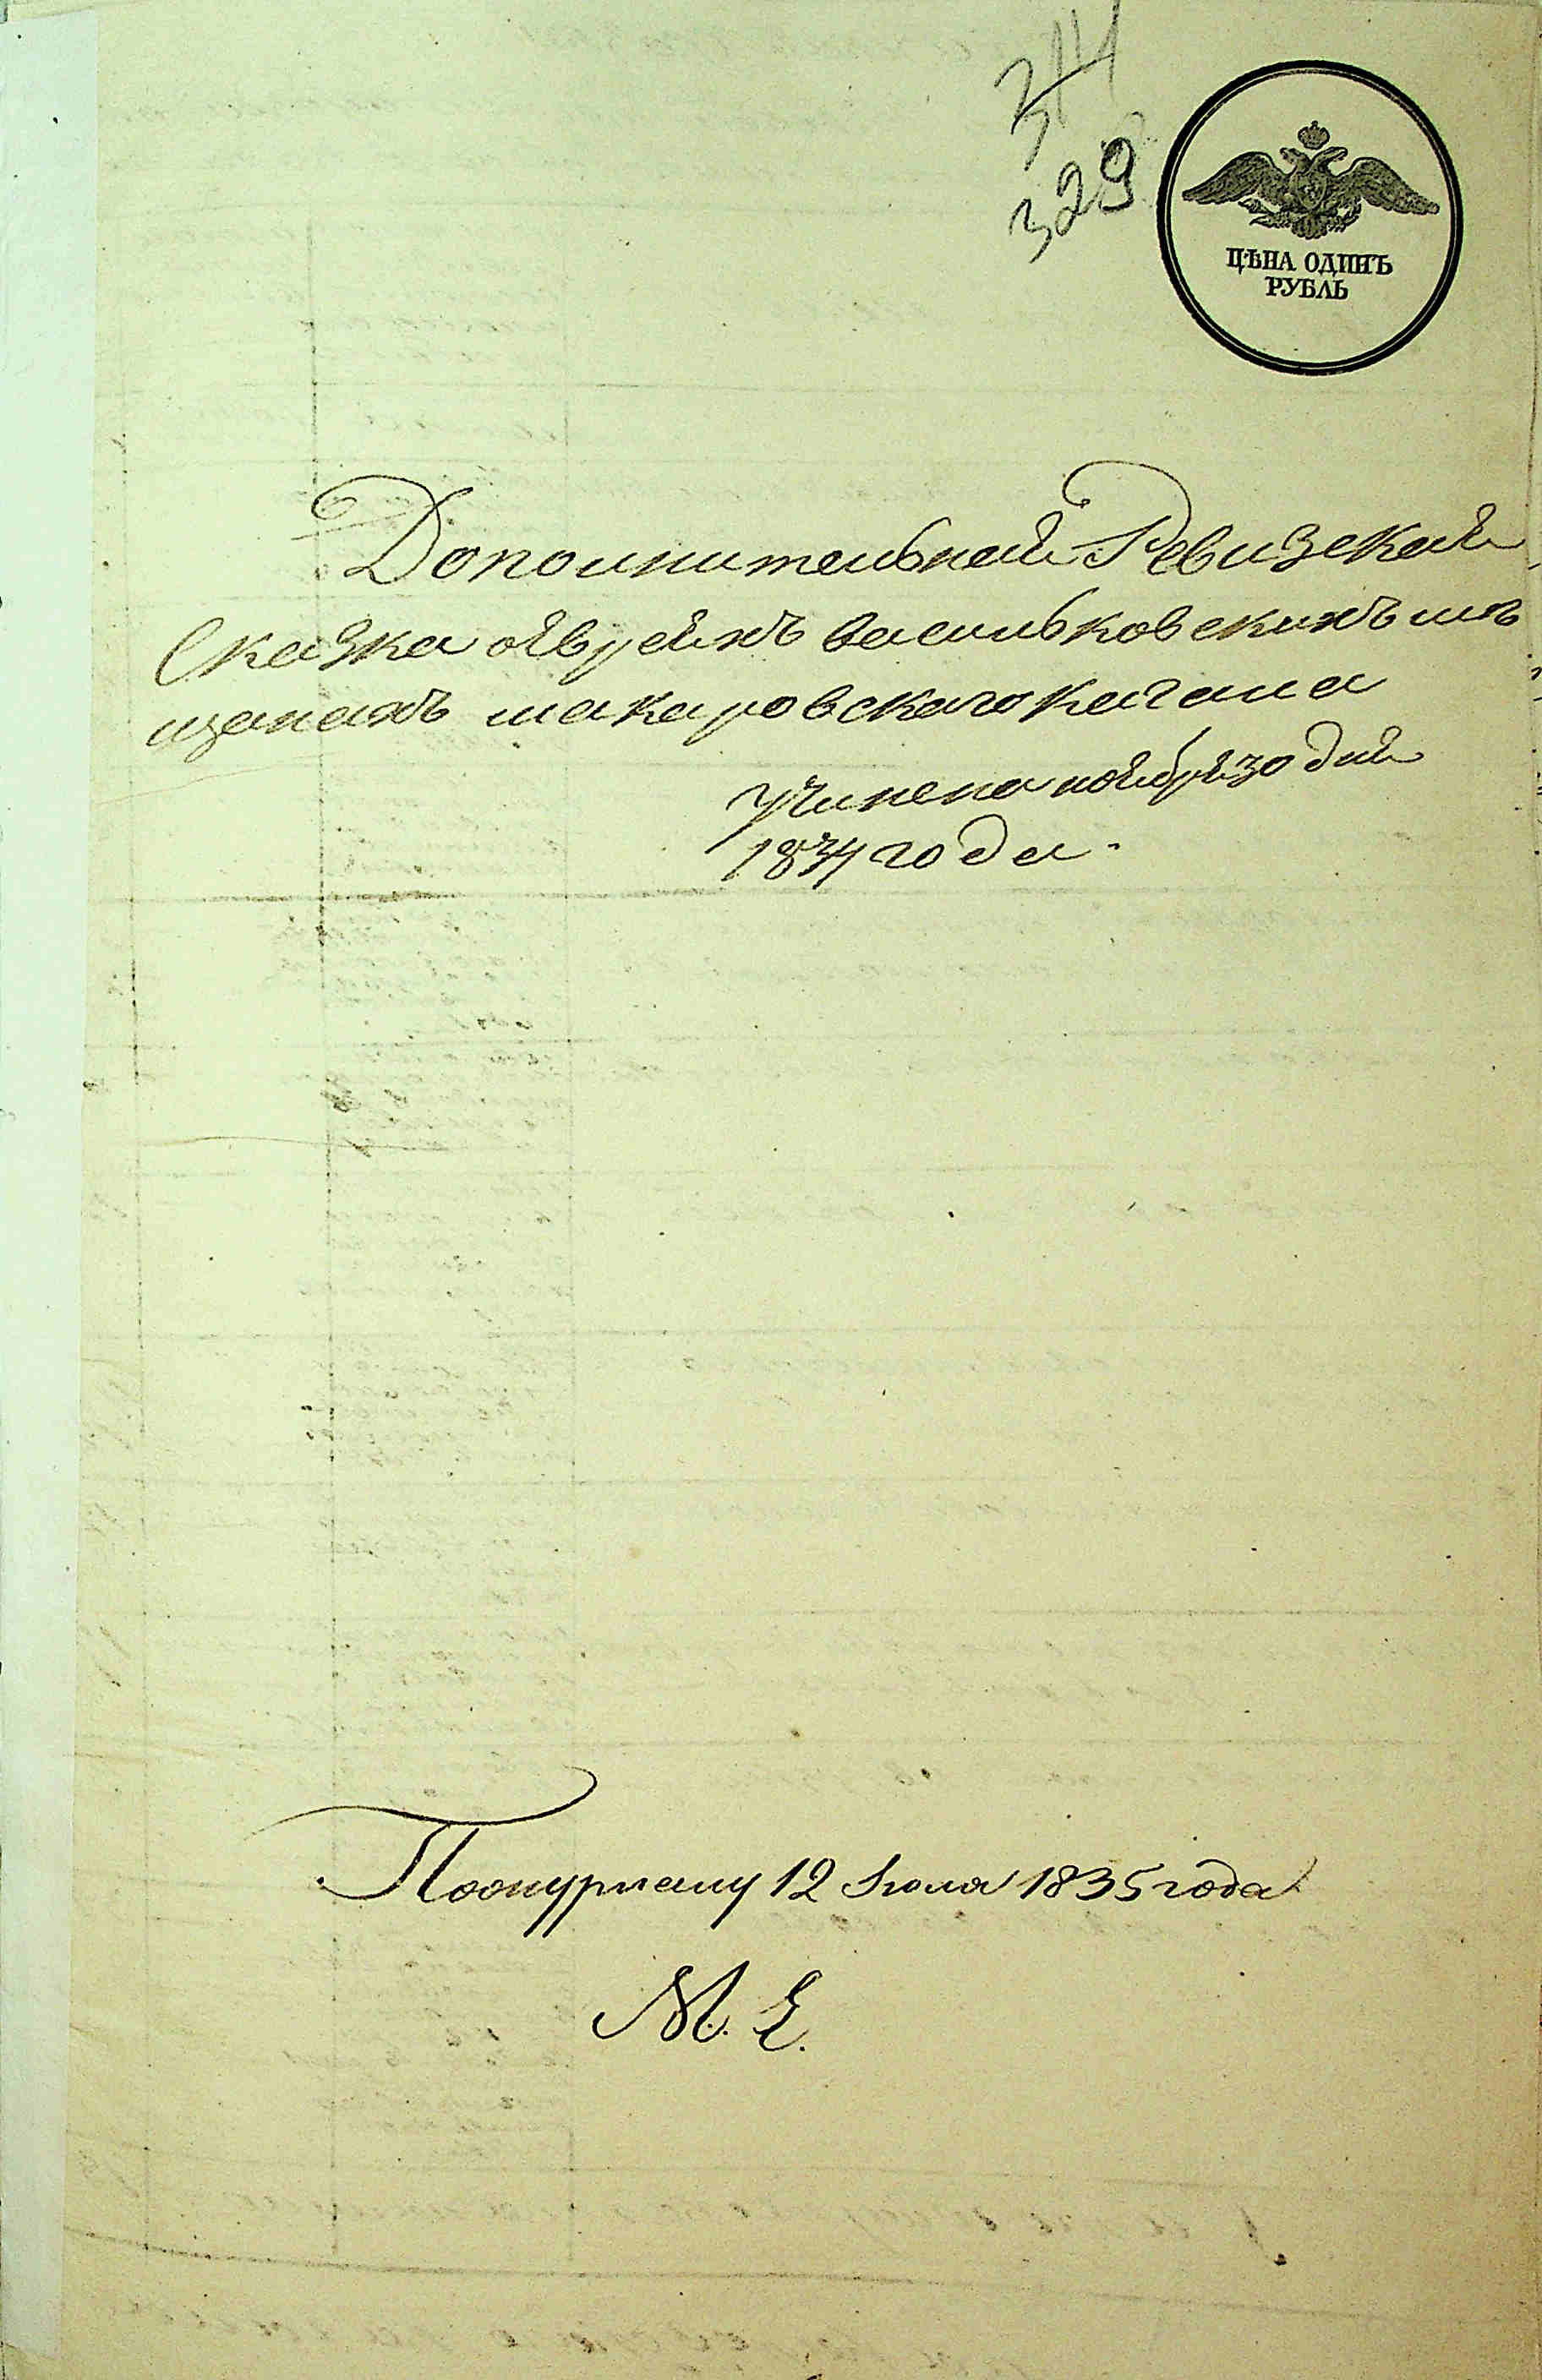 314
329
ЦѢНА ОДИНЪ
РУБЛЬ
Дополнительная Ревизская
Сказка оЕвреяхъ васильковскихъ мѣ
щанахъ макаровского кагала
Учинена ноября 30 дня
1834 года.
12 Іюля 1835 года